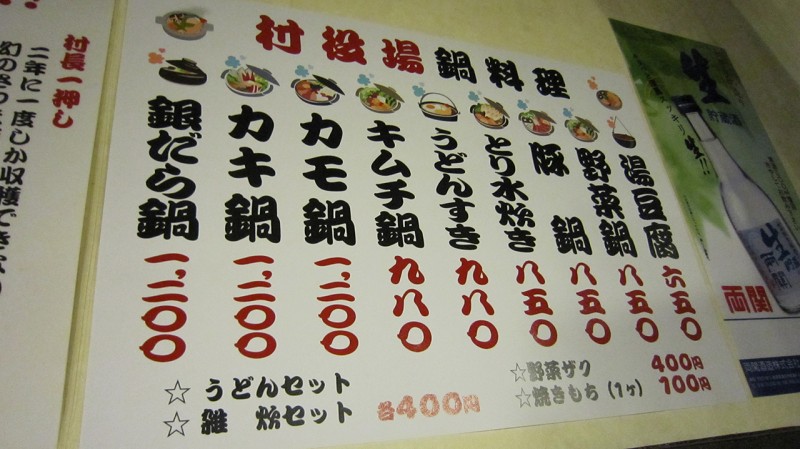 村役場 鍋料理
湯豆腐 六五〇
野菜鍋 八五〇
豚鍋 八五〇
とり水炊き 八五〇
うどんすき 九八〇
キムチ鍋 九八〇
カモ鍋 一、二〇〇
カキ鍋 一、二〇〇
銀だら鍋 一、二〇〇
☆うどんセット
☆雑炊セット
各400円
☆野菜ザク 400円
☆焼きもち（1ヶ） 100円
村長一押し
二年に一度しか収穫できない
生
貯蔵酒
生!!
両関